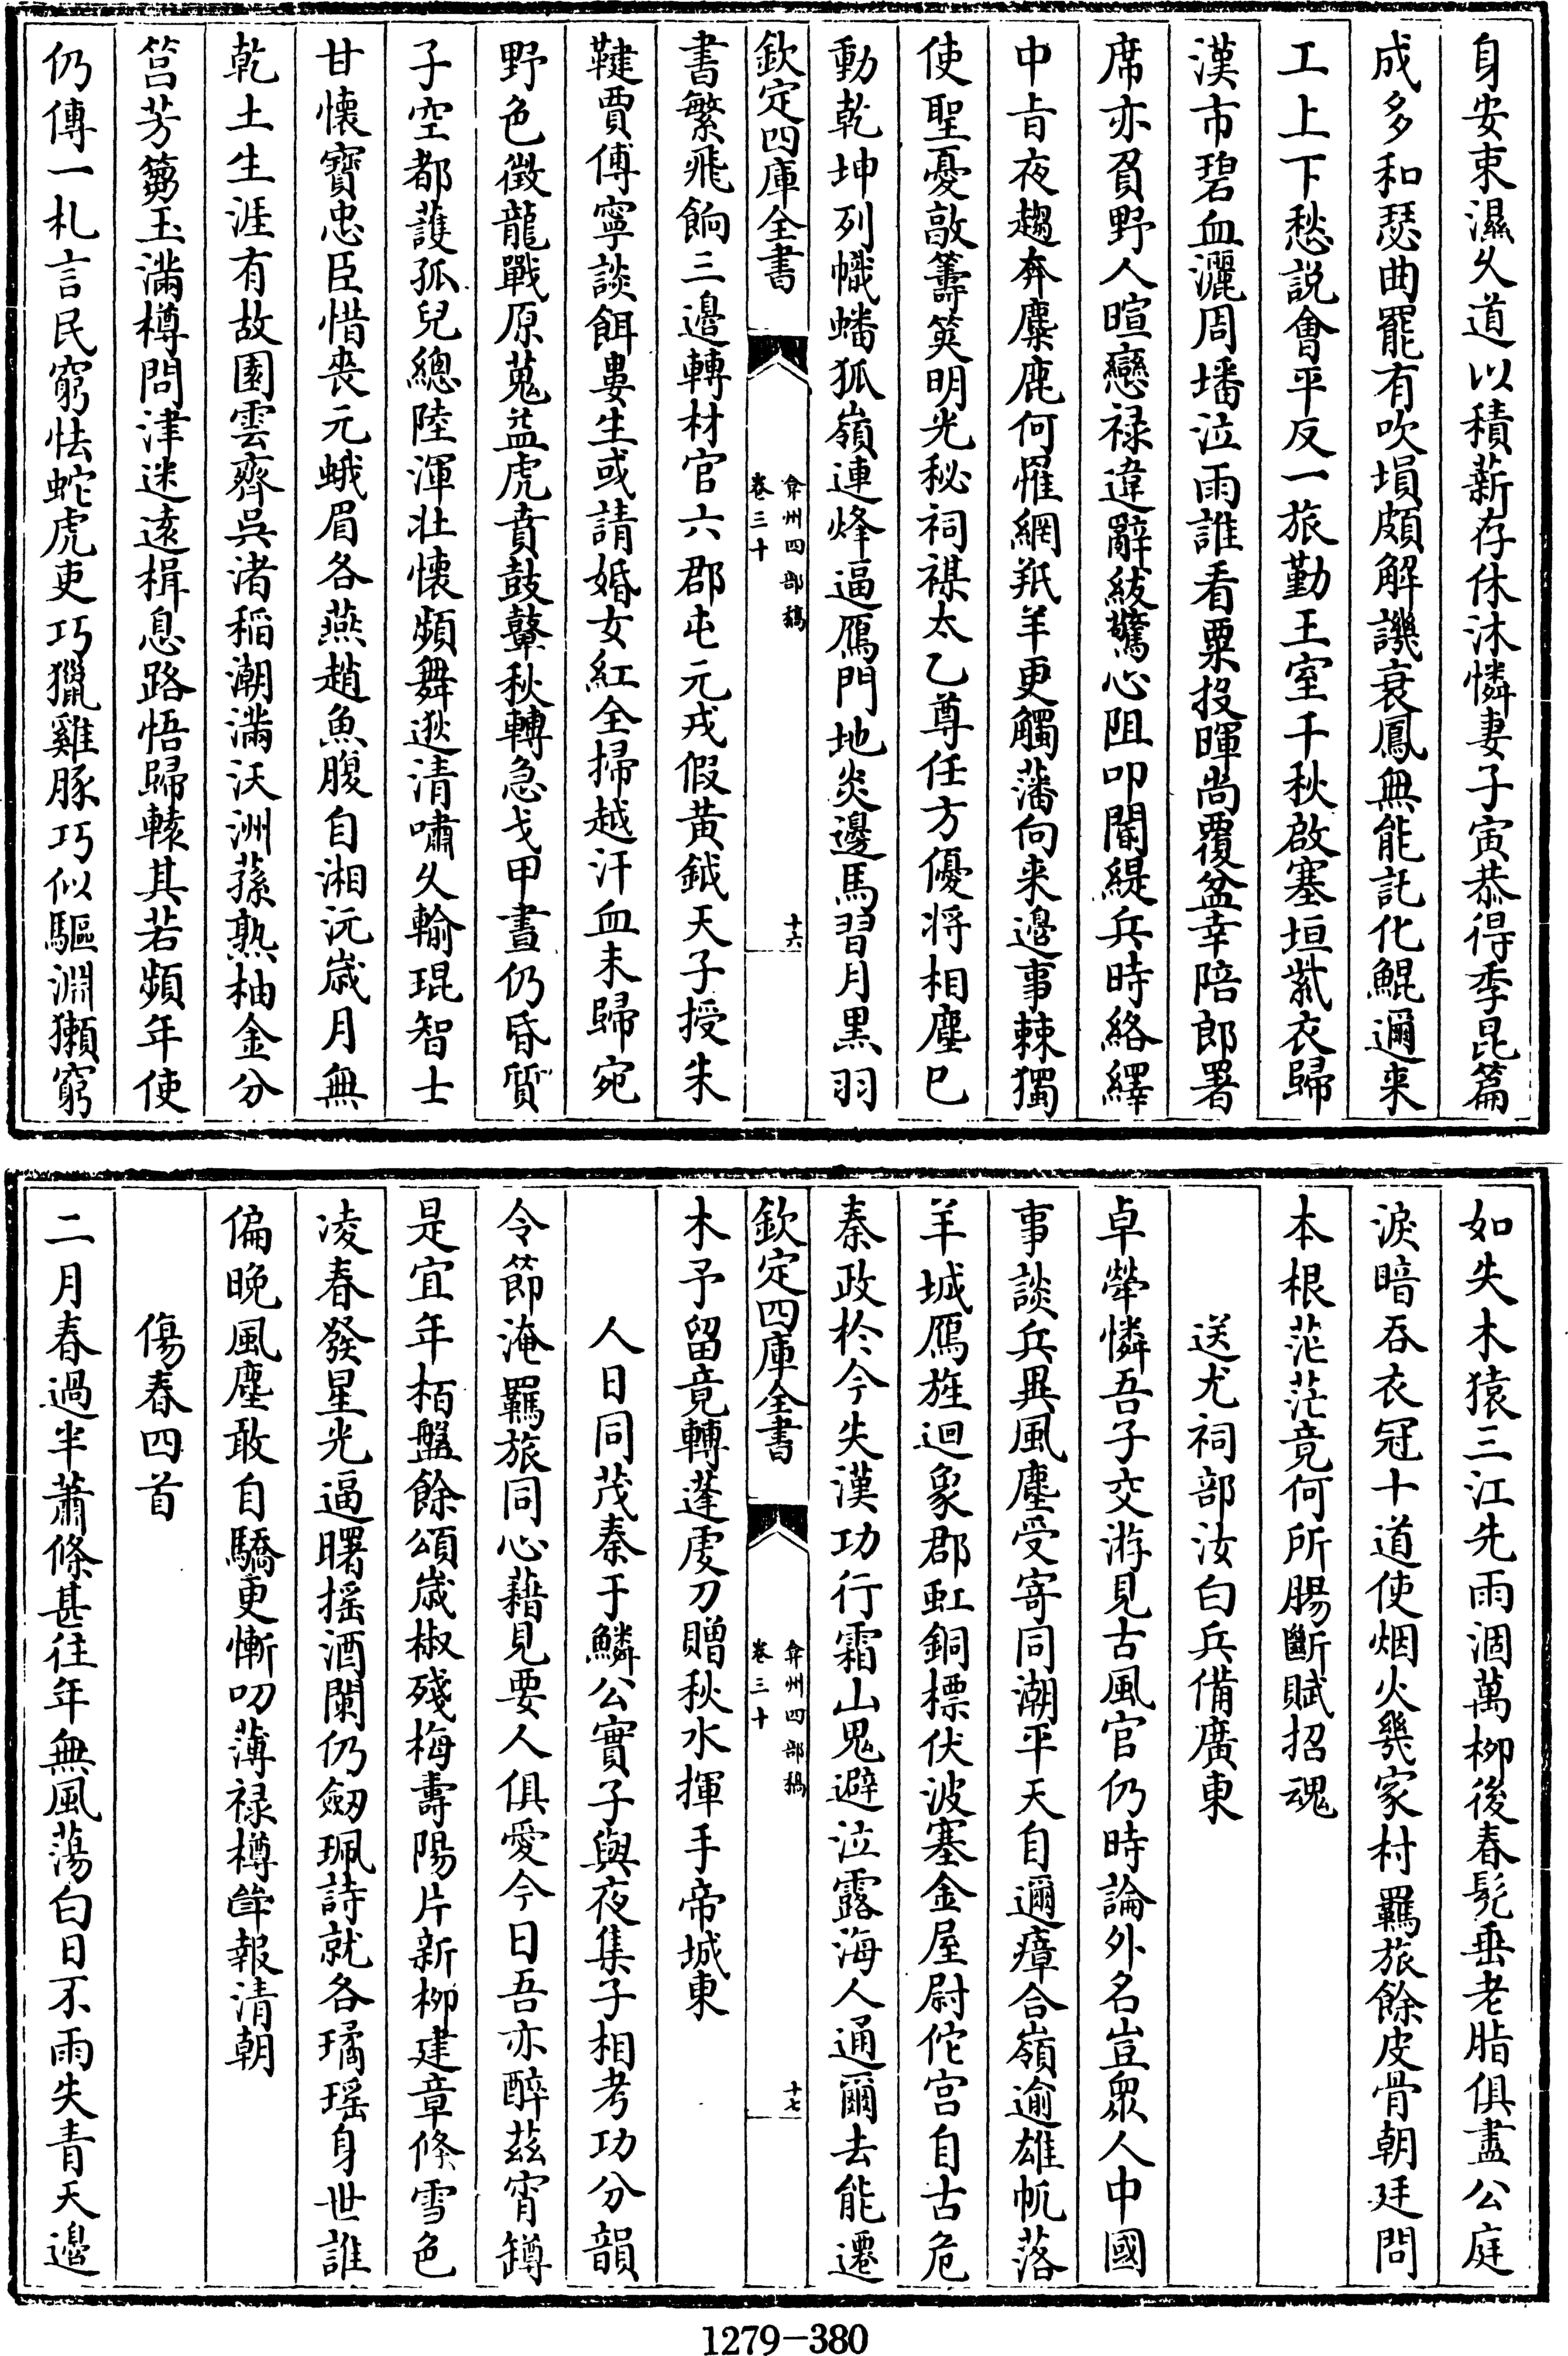 身安束濕久道以積薪存休沐憐妻子寅恭得季昆篇
成多和瑟曲罷有吹塤頗解譏衰鳳無能託化鯤邇来
工上下愁説會平反一旅勤王室千秋啟塞垣紫衣歸
漢市碧血灑周墦泣雨誰看粟投暉尚覆盆幸陪郎署
席亦負野人暄戀禄違辭紱驚心阻叩閽緹兵時絡繹
中旨夜趨奔麋鹿何罹網羝羊更觸藩向来邊事棘獨
使聖憂敦籌筴明光秘祠禖太乙尊任方優将相塵已
動乾坤列幟蟠狐嶺連烽逼鴈門地炎邊馬習月黒羽
欽定四庫全書
弇州四部稿
卷三十
十六
書繁飛餉三邊轉材官六郡屯元戎假黄鉞天子授朱
鞬賈傅寧談餌婁生或請婚女紅全掃越汗血未歸宛
野色徴龍戰原蒐益虎賁鼓鼙秋轉急戈甲晝仍昏質
子空都護孤兒總陸渾壯懐頻舞逖清嘯久輸琨智士
甘懐寶忠臣惜喪元蛾眉各燕趙魚腹自湘沅歳月無
乾土生涯有故園雲齊呉渚稲潮滿沃洲蓀熟柚金分
筥芳蒭玉滿樽問津迷逺楫息路悟歸轅其若頻年使
仍傳一札言民窮怯蛇虎吏巧獵雞豚巧似驅淵獺窮
如失木猿三江先雨涸萬栁後春髠垂老脂俱盡公庭
淚暗吞衣冠十道使烟火幾家村羈旅餘皮骨朝廷問
本根茫茫竟何所腸斷賦招魂
送尤祠部汝白兵備廣東
卓犖憐吾子交游見古風官仍時論外名豈衆人中國
事談兵異風塵受寄同潮平天自邇瘴合嶺逾雄帆落
羊城鴈旌迴象郡虹銅標伏波塞金屋尉佗宫自古危
秦政於今失漢功行霜山鬼避泣露海人通爾去能遷
欽定四庫全書
弇州四部稿
卷三十
十七
木予留竟轉蓬䖍刀贈秋水揮手帝城東
人日同茂秦于鱗公實子與夜集子相考功分韻
令節淹羈旅同心藉見要人俱愛今日吾亦醉兹宵罇
是宜年栢盤餘頌歳椒殘梅壽陽片新栁建章條雪色
凌春發星光逼曙摇酒闌仍劒珮詩就各璚瑶身世誰
偏晩風塵敢自驕更慚叨薄禄樽罍報清朝
傷春四首
二月春過半蕭條甚往年無風蕩白日不雨失青天邊
1279-380